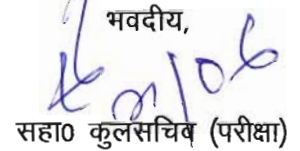 भवदीय,
सहा0 कुलसचिव (परीक्षा)